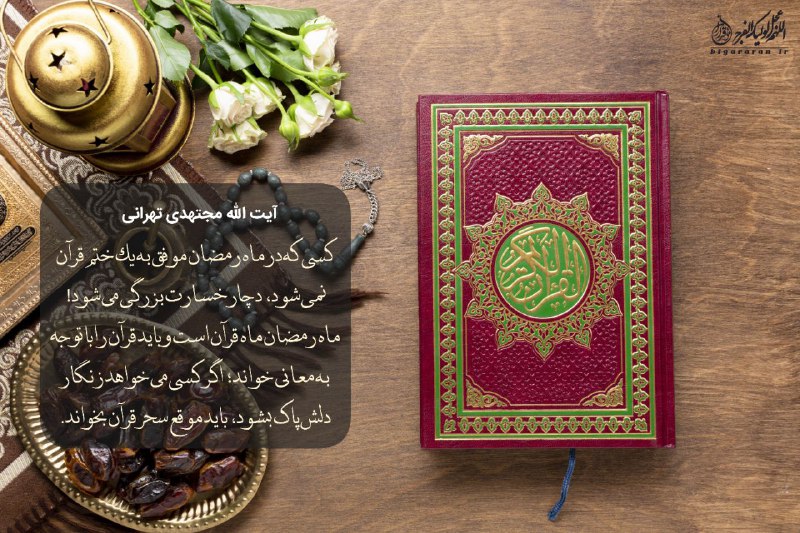 اللهم عجل لولیک الفرج
bigararan.ir
آیت الله مجتهدی تهرانی
کسی که در ماه رمضان موفق به یک ختم قرآن
نمی‌شود، دچار خسارت بزرگی می‌شود!
ماه رمضان ماه قرآن است و باید قرآن را با توجه
به معانی خواند؛ اگر کسی می‌خواهد زنگار
دلش پاک بشود، باید موقع سحر قرآن بخواند.
القرآن الكريم